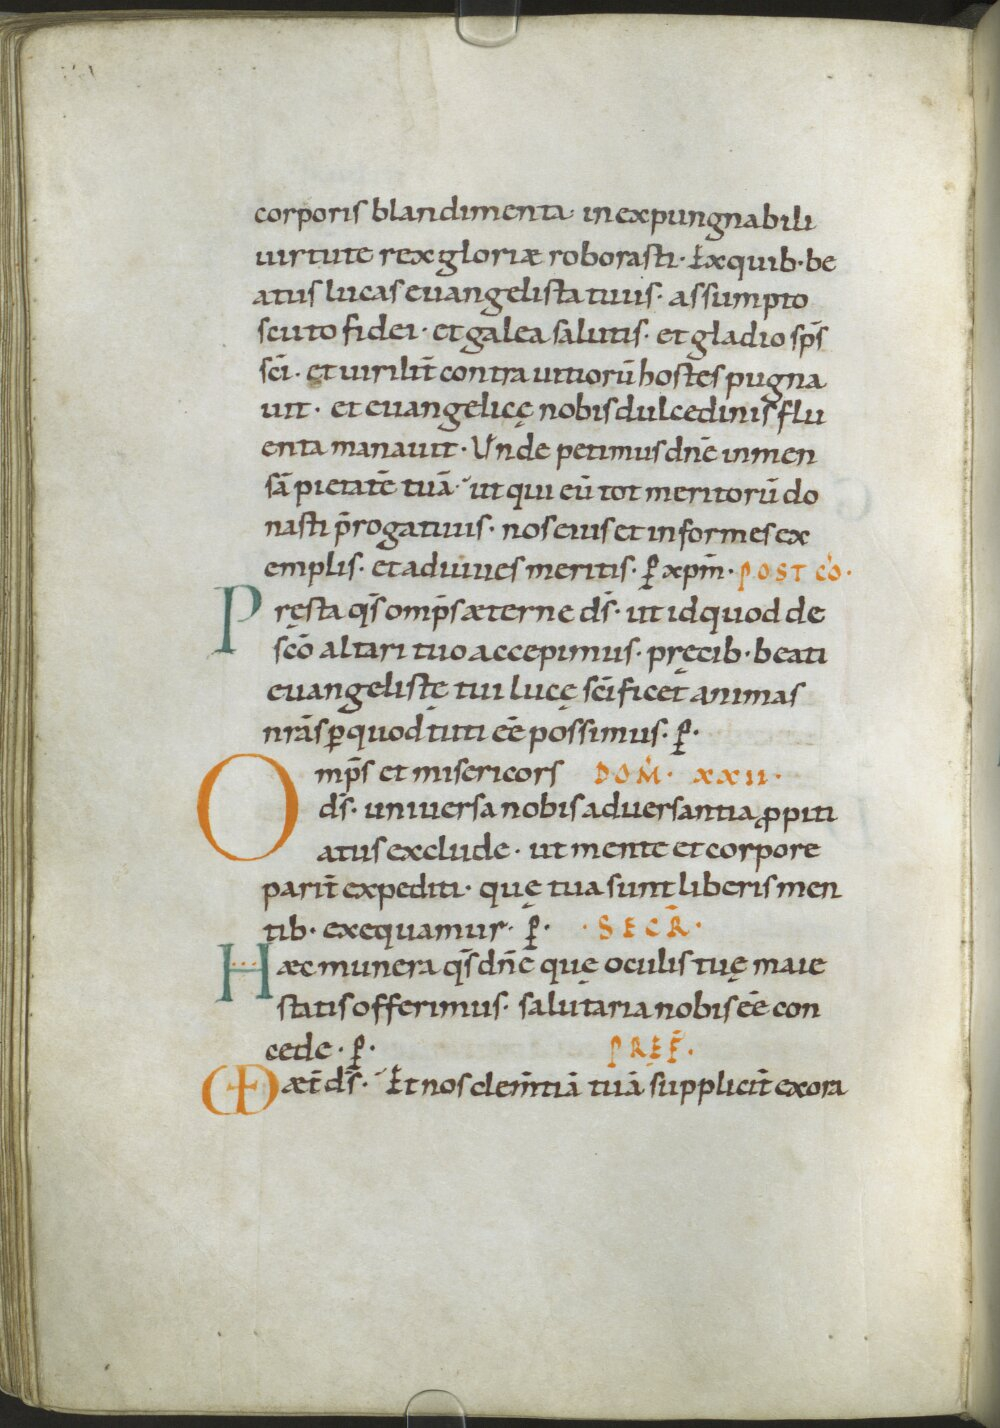 corporis blandimenta· inexpungnabili
uirtute rex gloriæ roborasti· Ex quib· be
atus lucas euangelista tuus· assumpto
scuto fidei· et galea salutis· et gladio sp̄s
sc̄i· et uirilit̄ contra uitiorū hostes pugna
uit· et euangelicę nobis dulcedinis flu
enta manauit· Unde petimus dn̄e inmen
sā pietatē tuā· ut qui eū tot meritorū do
nasti p̄rogatiuis· nos eius et informes ex
emplis· et adiuues meritis· ꝑ xp̄m· POST CŌ·
Pręsta qs̄ omp̄s æterne ds̄· ut id quod de
sc̄o altari tuo accepimus· pręcib· beati
euangelistę tui lucę sc̄ificet animas
nr̄as ꝑ quod tuti eē possimus· ꝑ·
Omp̄s et misericors DOM̄· XXII·
ds̄· uniuersa nobis aduersantia ꝓpiti
atus exclude· ut mente et corpore
parit̄ expediti· quę tua sunt liberis men
tib· exequamur· ꝑ· ·SECR̄·
Hæc munera qs̄ dn̄e quę oculis tuę maie
statis offerimus· salutaria nobis eē con
cede· ꝑ· PREF̄·
æt̄ ds̄· Et nos clem̄tiā tuā supplicit̄ exora